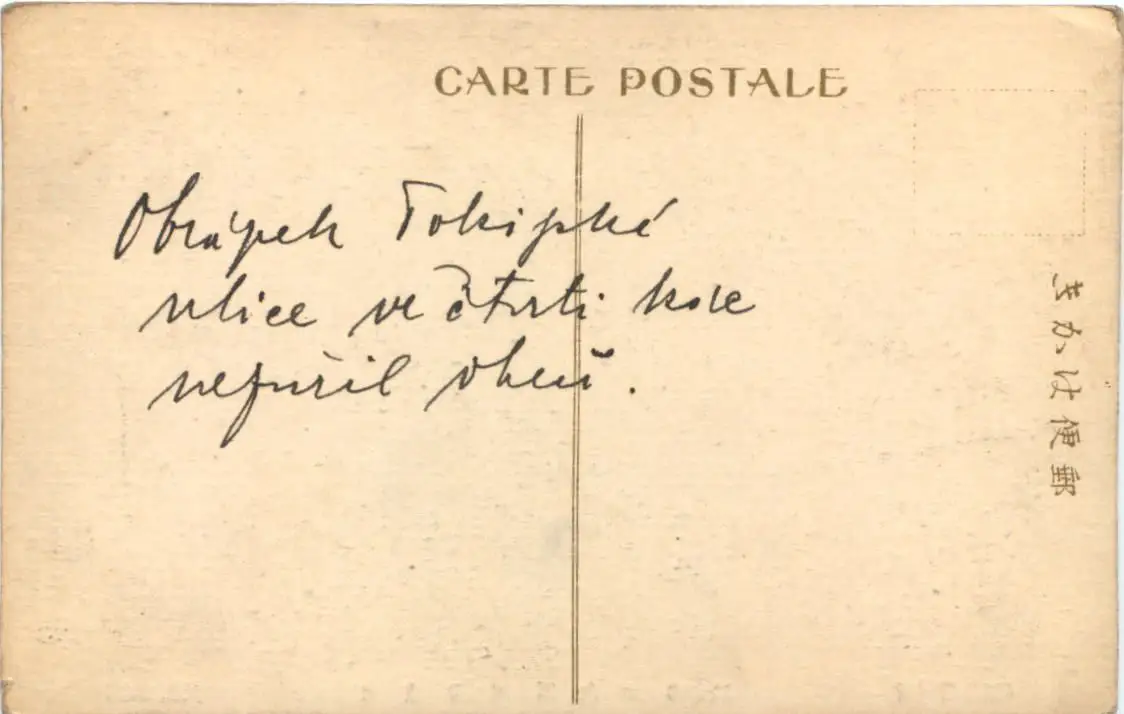 CARTE POSTALE
Obrázek Tokijské
ulice ve čtvrti kde
nezuřil oheň.
きかは便郵